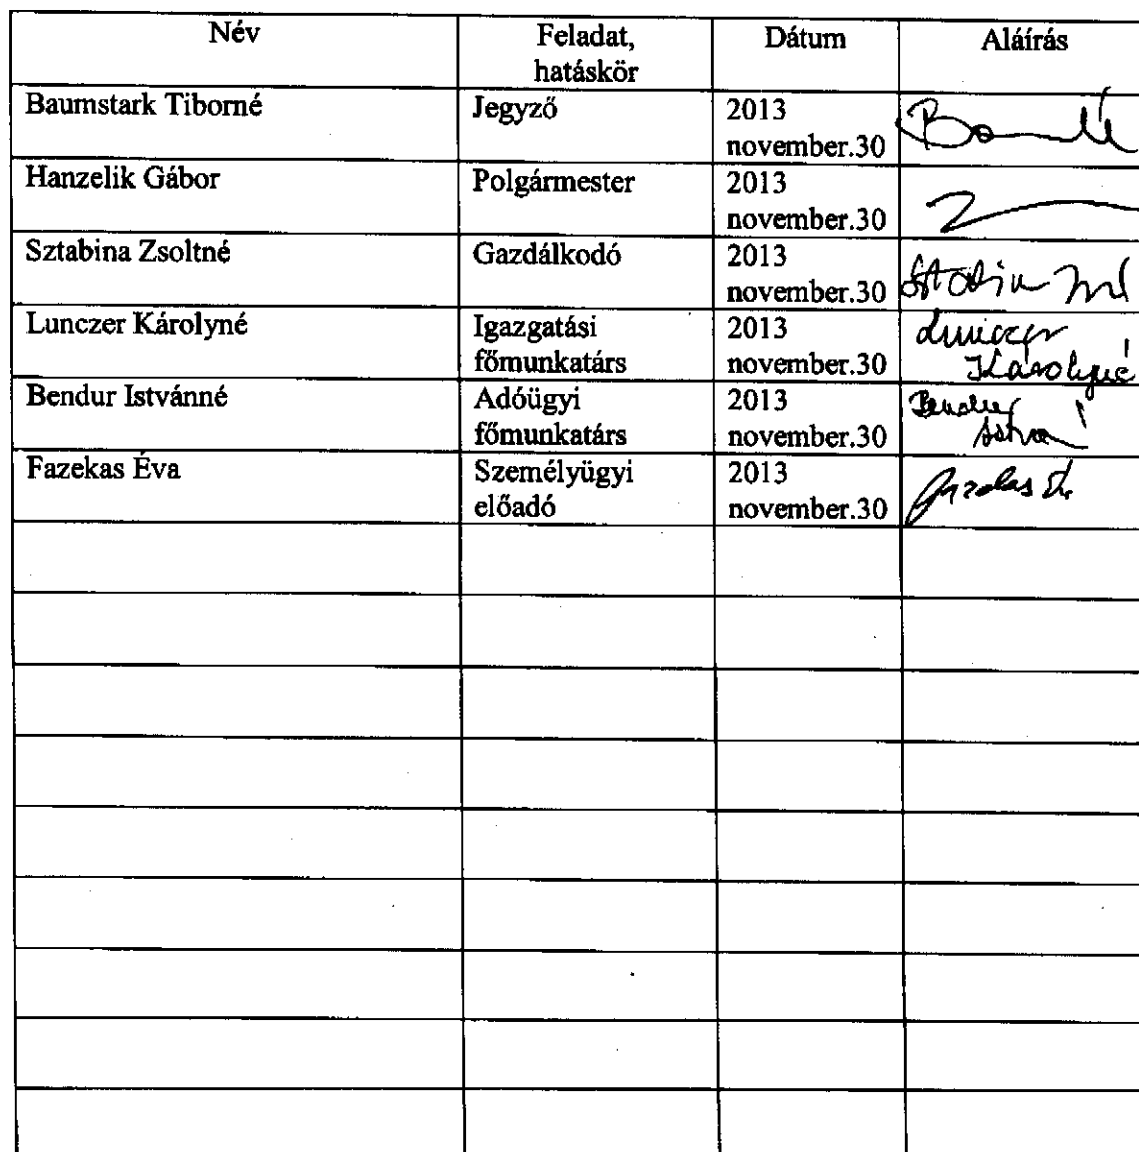 Név
Feladat,
hatáskör
Dátum
Aláírás
Baumstark Tiborné
Jegyző
2013
november.30
Hanzelik Gábor
Polgármester
2013
november.30
Sztabina Zsoltné
Gazdálkodó
2013
november.30
Lunczer Károlyné
Igazgatási
főmunkatárs
2013
november.30
Lunczer
Károlyné
Bendur Istvánné
Adóügyi
főmunkatárs
2013
november.30
Fazekas Éva
Személyügyi
előadó
2013
november.30
Fazekas É.